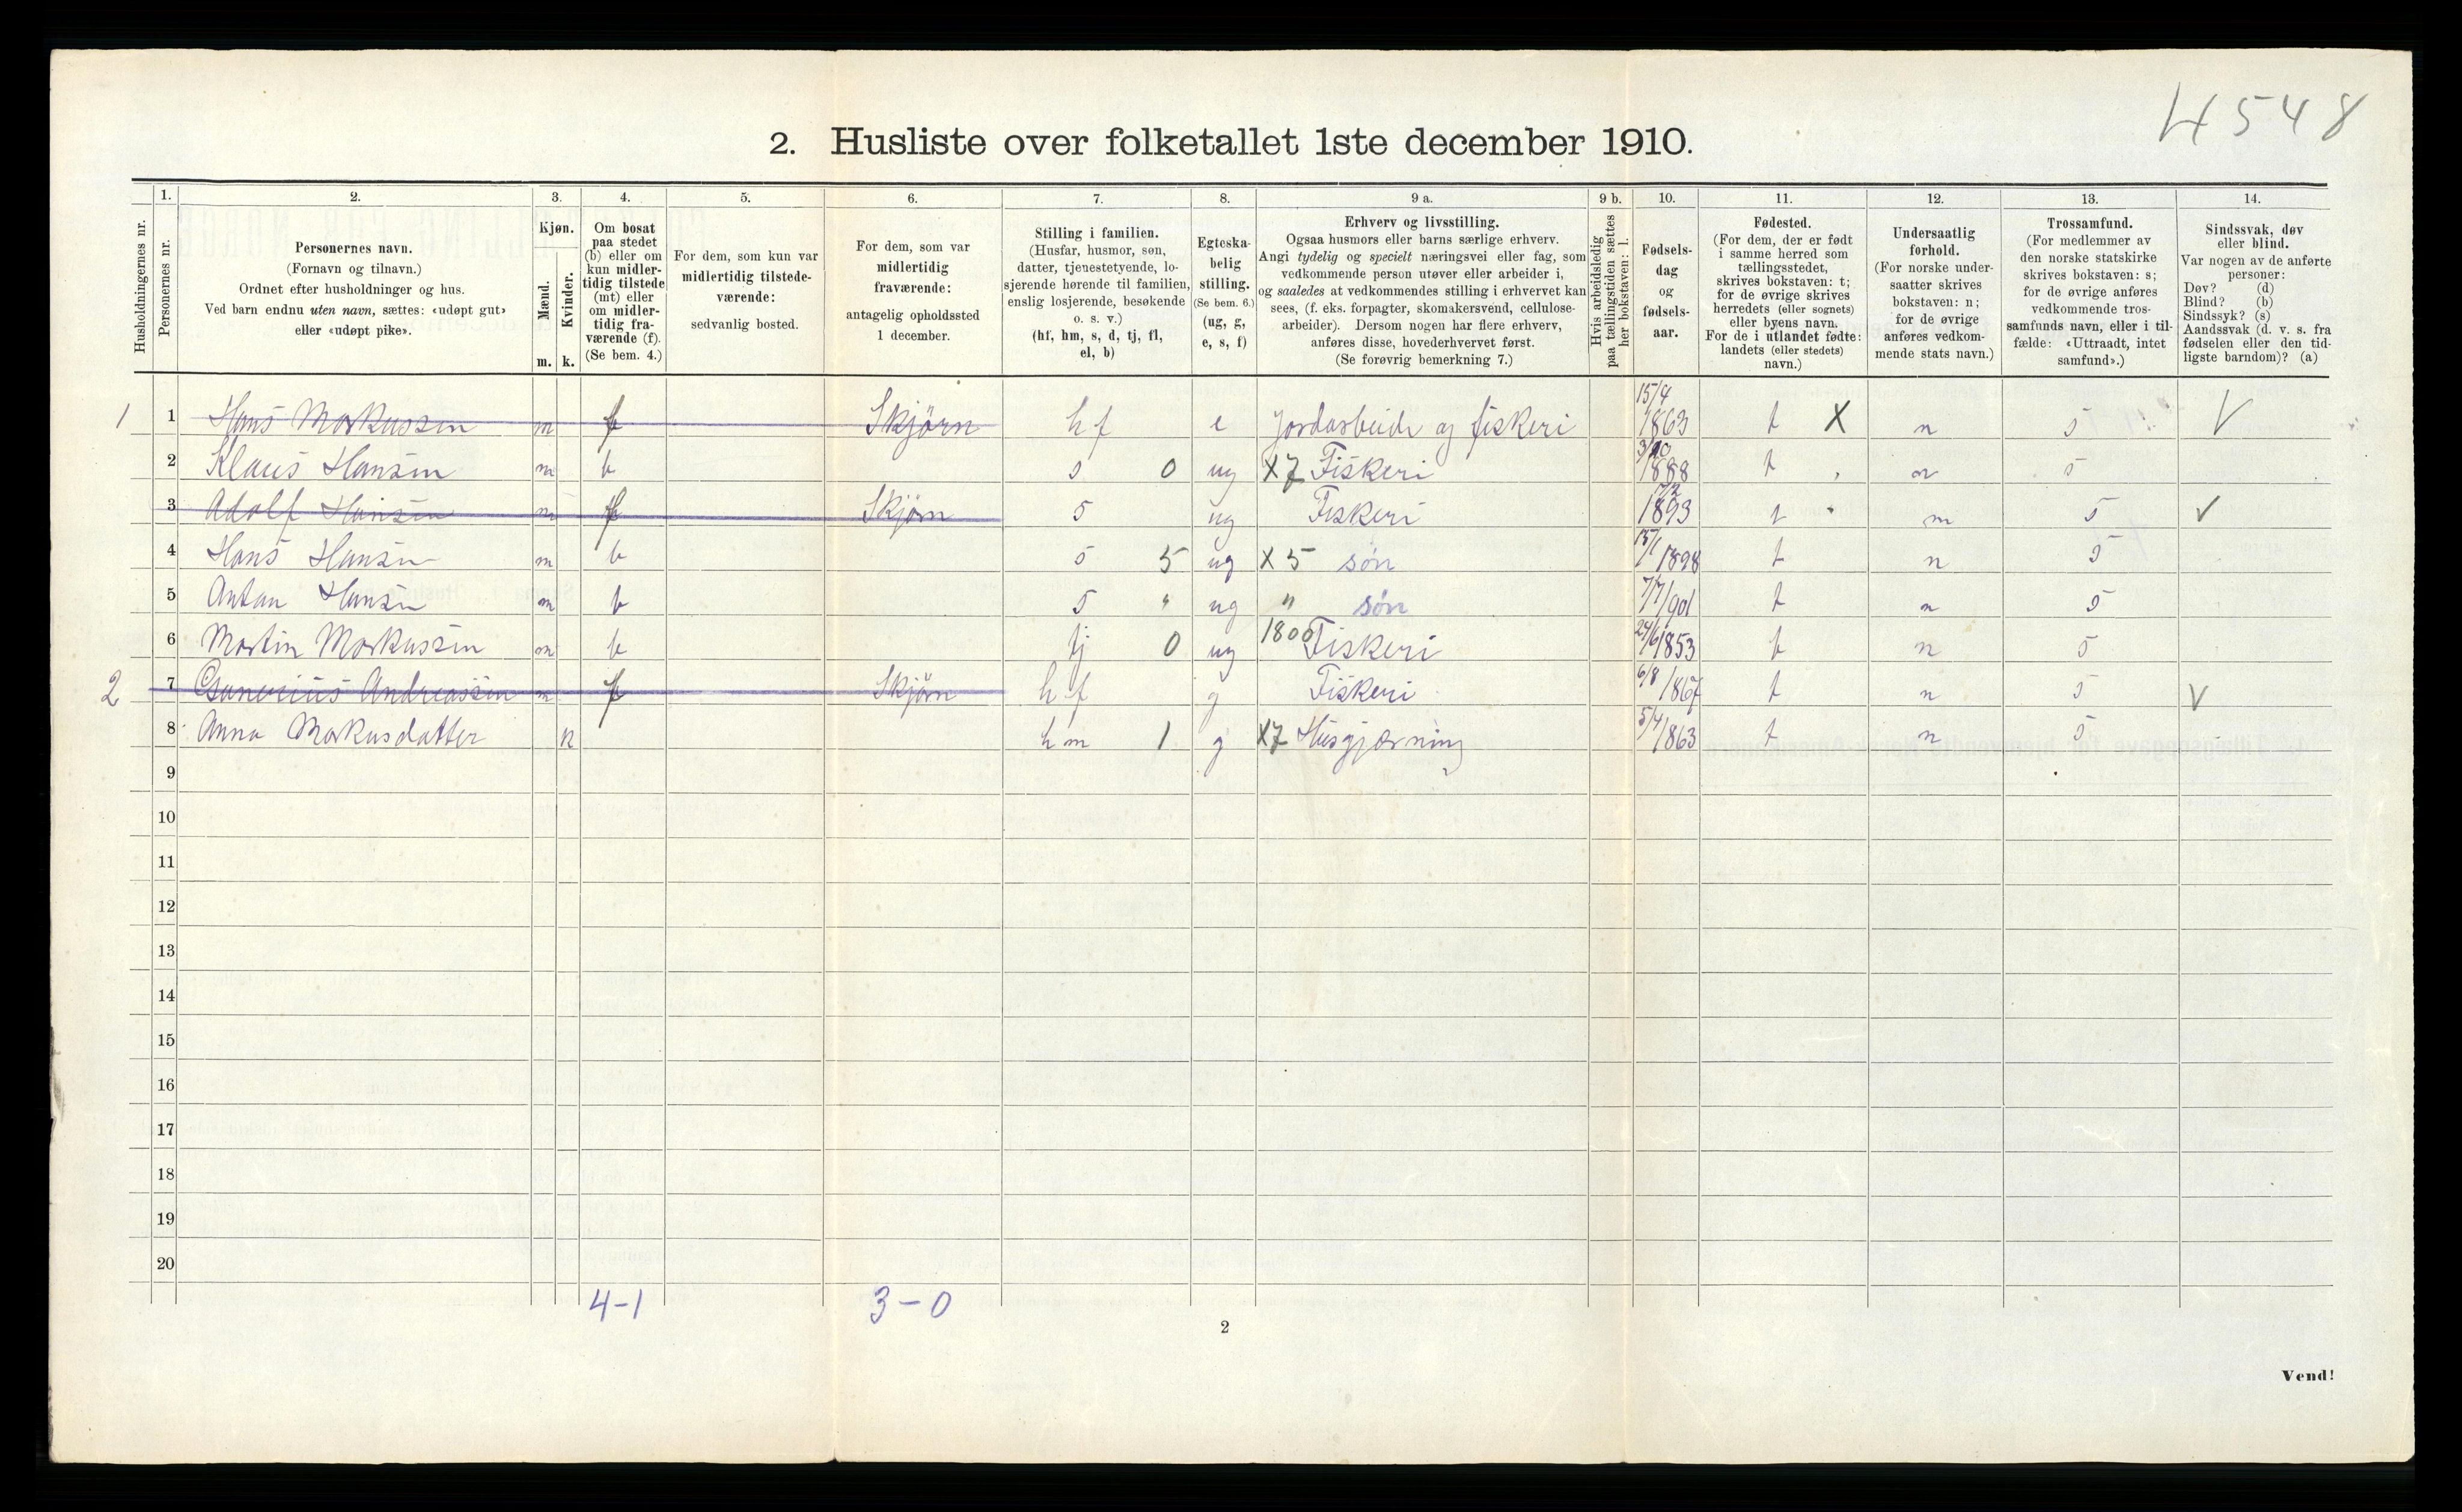 4548
2. Husliste over folketallet 1ste december 1910.
1. 2. 3. 4. 5. 6. 7. 8. 9 a. 9 b. 10. 11. 12. 13. 14.
Husholdningernes nr.
Personernes nr.
Personernes navn.
(Fornavn og tilnavn.)
Ordnet efter husholdninger og hus.
Ved barn endnu uten navn, sættes: «udøpt gut»
eller «udøpt pike».
Kjøn.
Mænd.
Kvinder.
m. k.
Om bosat
paa stedet
(b) eller om
kun midler-
tidig tilstede
(mt) eller
om midler-
tidig fra-
værende (f).
(Se bem. 4.)
For dem, som kun var
midlertidig tilstede-
værende:
sedvanlig bosted.
For dem, som var
midlertidig
fraværende:
antagelig opholdssted
1 december.
Stilling i familien.
(Husfar, husmor, søn,
datter, tjenestetyende, lo-
sjerende hørende til familien,
enslig losjerende, besøkende
o. s. v.)
(hf, hm, s, d, tj, fl,
el, b)
Egteska-
belig
stilling.
(Se bem. 6.)
(ug, g,
e, s, f)
Erhverv og livsstilling.
Ogsaa husmors eller barns særlige erhverv.
Angi tydelig og specielt næringsvei eller fag, som
vedkommende person utøver eller arbeider i,
og saaledes at vedkommendes stilling i erhvervet kan
sees, (f. eks. forpagter, skomakersvend, cellulose-
arbeider). Dersom nogen har flere erhverv,
anføres disse, hovederhvervet først.
(Se forøvrig bemerkning 7.)
Hvis arbeidsledig
paa tællingstiden sættes
her bokstaven: l.
Fødsels-
dag
og
fødsels-
aar.
Fødested.
(For dem, der er født
i samme herred som
tællingsstedet,
skrives bokstaven: t;
for de øvrige skrives
herredets (eller sognets)
eller byens navn.
For de i utlandet fødte:
landets (eller stedets)
navn.)
Undersaatlig
forhold.
(For norske under-
saatter skrives
bokstaven: n;
for de øvrige
anføres vedkom-
mende stats navn.)
Trossamfund.
(For medlemmer av
den norske statskirke
skrives bokstaven: s;
for de øvrige anføres
vedkommende tros-
samfunds navn, eller i til-
fælde: «Uttraadt, intet
samfund».)
Sindssvak, døv
eller blind.
Var nogen av de anførte
personer:
Døv? (d)
Blind? (b)
Sindssyk? (s)
Aandssvak (d. v. s. fra
fødselen eller den tid-
ligste barndom)? (a)
1 1 Hans Markussen m f Skjörn hf e Jordarbeide og fiskeri 15/4 1863 t X n s V
2 Klaus Hansen m b s 0 ug X7 Fiskeri 3/10 1888 t n s
3 Adolf Hansen m f Skjörn s ug Fiskeri 1893 t n s V
4 Hans Hansen m b s 5 ug X 5 søn 15/1 1898 t n s
5 Anton Hansen m b s " ug " søn 7/7/901 t n s
6 Martin Markussen m b tj 0 ug 1800 Fiskeri 24/6 1853 t n s
2 7 Andreassen m f Skjörn hf g Fiskeri 6/8 /867 t n s V
8 Anna Markusdatter k hm 1 g X7 Husgjerning 5/4 1863 t n s
9
10
11
12
13
14
15
16
17
18
19
20
4-1 3-0
2
Vend!